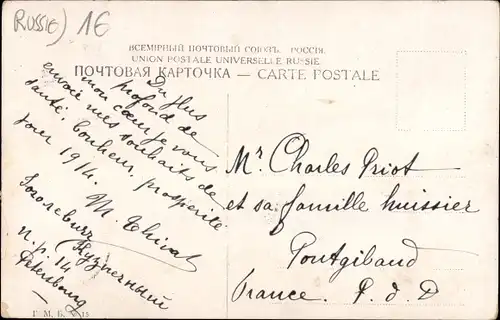 RUSSIE) 16
ВСЕМІРНЫЙ ПОЧТОВЫЙ СОЮЗЪ. РОССІЯ.
UNION POSTALE UNIVERSELLE RUSSIE
ПОЧТОВАЯ КАРТОЧКА — CARTE POSTALE
Du plus
profond de
mon cœur je vous
envoie mes souhaits de
santé, bonheur, prospérité
pour 1914.
M. Thivat
(Кузнечный
n. p. 14
Petersbourg
Mr Charles Priot
et sa famille huissier
Pontgibaud
France. P. d D
Г. М. Б. 15